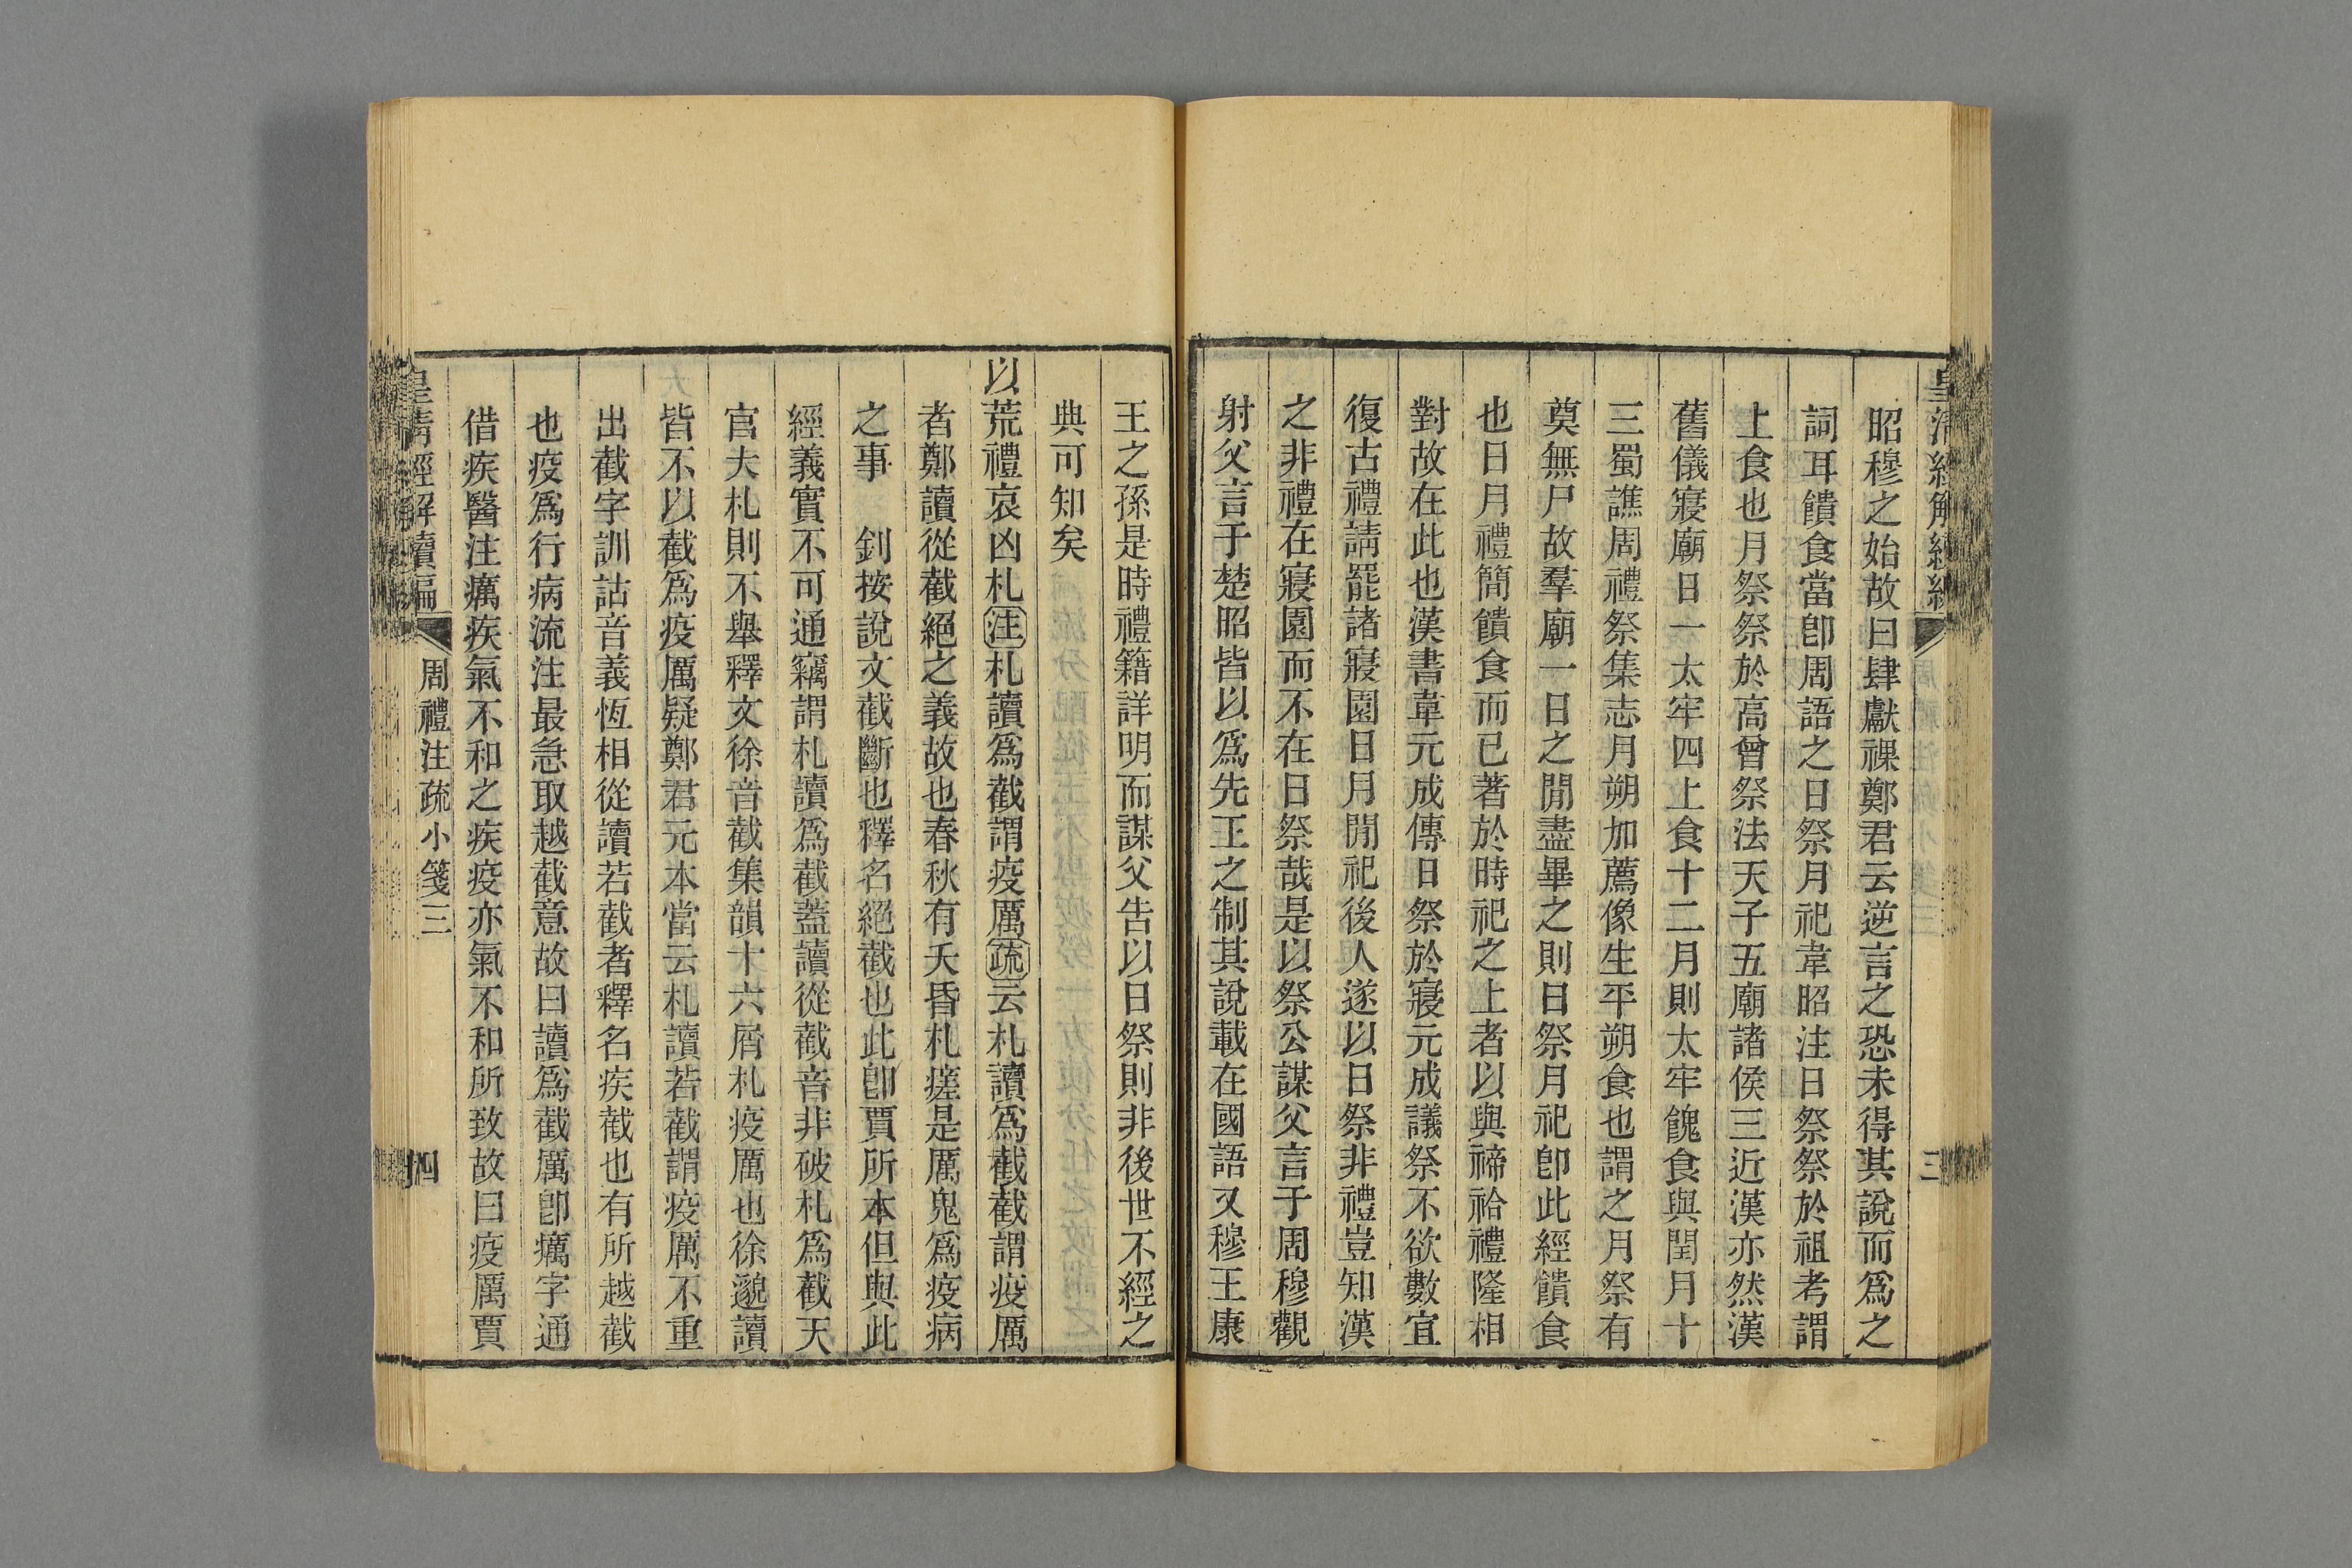 昭穆之始故曰肆獻祼鄭君云逆言之恐未得其說而爲之
詞耳饋食當卽周語之日祭月祀韋昭注日祭祭於祖考謂
上食也月祭祭於高曾祭法天子五廟諸侯三近漢亦然漢
舊儀寢廟日一太牢四上食十二月則太牢餽食與閏月十
三蜀譙周禮祭集志月朔加薦像生平朔食也謂之月祭有
奠無尸故羣廟一日之閒盡畢之則日祭月祀卽此經饋食
也日月禮簡饋食而已著於時祀之上者以與禘祫禮隆相
對故在此也漢書韋元成傳日祭於寢元成議祭不欲數宜
復古禮請罷諸寢園日月閒祀後人遂以日祭非禮豈知漢
之非禮在寢園而不在日祭哉是以祭公謀父言于周穆觀
射父言于楚昭皆以爲先王之制其說載在國語又穆王康
王之孫是時禮籍詳明而謀父告以日祭則非後世不經之
典可知矣
以荒禮哀凶札注札讀爲截謂疫厲疏云札讀爲截截謂疫厲
者鄭讀從截絕之義故也春秋有夭昏札瘥是厲鬼爲疫病
之事　釗按說文截斷也釋名絕截也此卽賈所本但與此
經義實不可通竊謂札讀爲截蓋讀從截音非破札爲截天
官夫札則不舉釋文徐音截集韻十六屑札疫厲也徐邈讀
皆不以截爲疫厲疑鄭君元本當云札讀若截謂疫厲不重
出截字訓詁音義恆相從讀若截者釋名疾截也有所越截
也疫爲行病流注最急取越截意故曰讀爲截厲卽癘字通
借疾醫注癘疾氣不和之疾疫亦氣不和所致故曰疫厲賈
皇清經解續編
周禮注疏小箋三
四